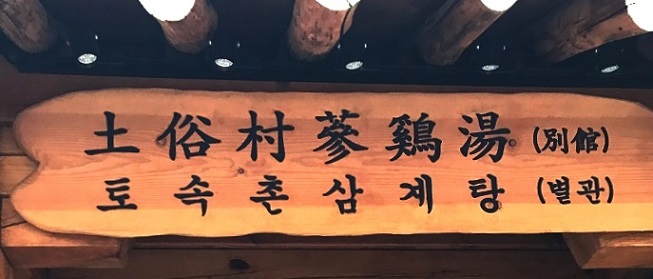 土俗村蔘鷄湯(別館)
토속촌삼계탕(별관)